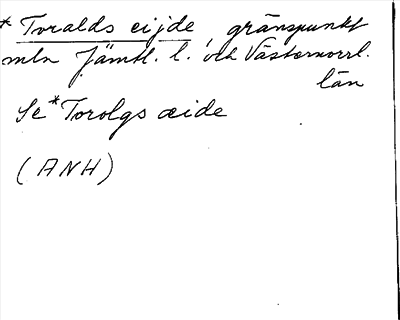 * Toralds eijde, gränspunkt
mln Jämtl. l. och Västernorrl.
län
Se *Torolgs æide
(ANH)